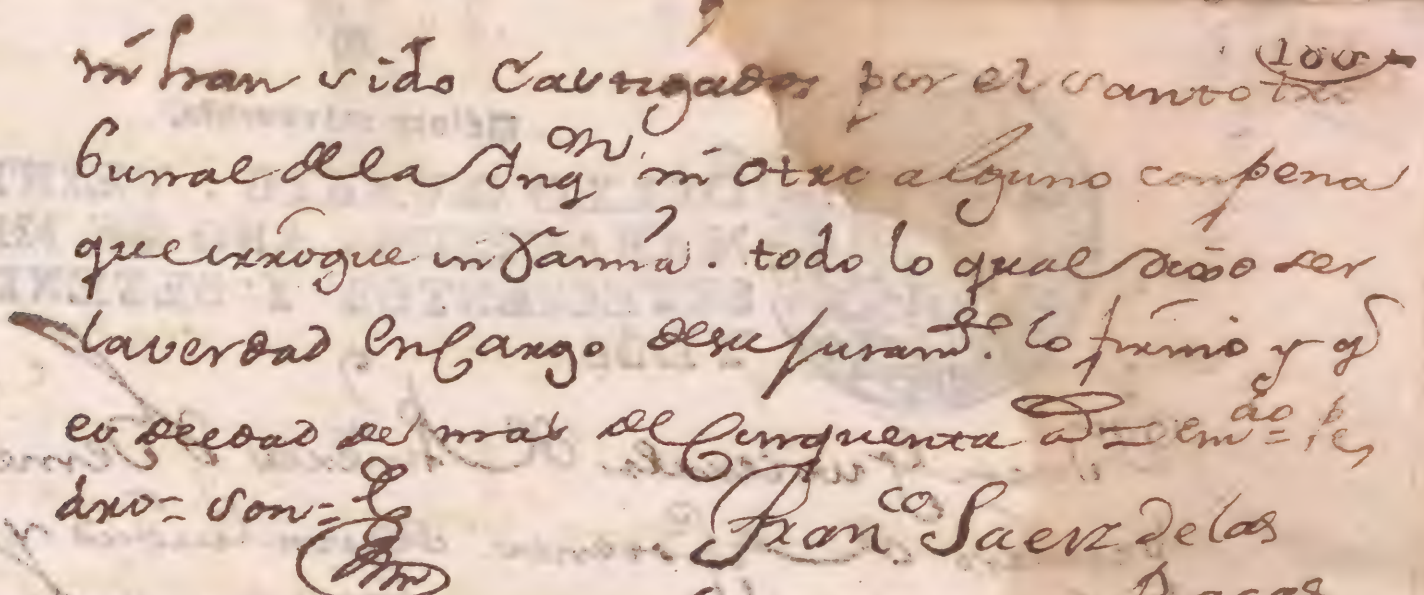 100
ni han sido Castigados por el santo tri
bunal de la Ynqon ni otro alguno con pena
que irrogue infamia. todo lo qual dixo ser
la verdad en Cargo de su juramto. lo firmó y q
es de edad de mas de Cinquenta as = emdo = Pe
dro = son =
Franco Saenz de las